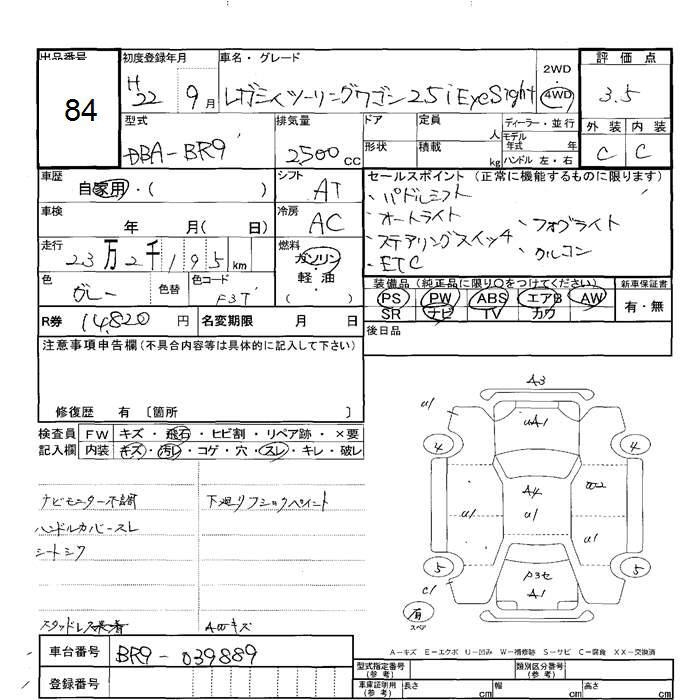 出品番号
84
初度登録年月
H 22 9 月
車名・グレード
レガシィツーリングワゴン 2.5i EyeSight
2WD
4WD
評価点
3.5
外装 内装
C C
型式
DBA-BR9
排気量
2500 cc
ドア 定員 人
形状 積載 kg
ディーラー・並行
モデル年式 年
ハンドル 左・右
車歴
自家用・( )
シフト
AT
セールスポイント(正常に機能するものに限ります)
・パドルシフト
・オートライト
・ステアリングスイッチ
・ETC
・フォグライト
・クルコン
車検
年 月( 日)
冷房
AC
走行
23万2千195 km
燃料
ガソリン
・
軽・油
・
( )
色
グレー
色替
色コード
F3T
装備品(純正品に限り○をつけてください)
PS PW ABS エアB AW
SR ナビ TV カワ
新車保証書
有・無
R券 14,820 円
名変期限 月 日
後日品
注意事項申告欄(不具合内容等は具体的に記入して下さい)
修復歴 有 〔箇所 〕
検査員記入欄
FW キズ・飛石・ヒビ割・リペア跡・×要
内装 キズ・汚レ・コゲ・穴・スレ・キレ・破レ
ナビモニター不調
ハンドルカバースレ
シートシワ
スタッドレス装着
下廻りフシックペイント
AWキズ
A3
U1
UA1
4 4
A4
U1 U1 U1
5 5
P3セ
A1
C1
有
スペア
A-キズ E-エクボ U-凹み W-補修跡 S-サビ C-腐食 XX-交換済
車台番号
BR9-039889
登録番号
型式指定番号(参考)
類別区分番号(参考)
車庫証明用(参考)
長さ cm 幅 cm 高さ cm